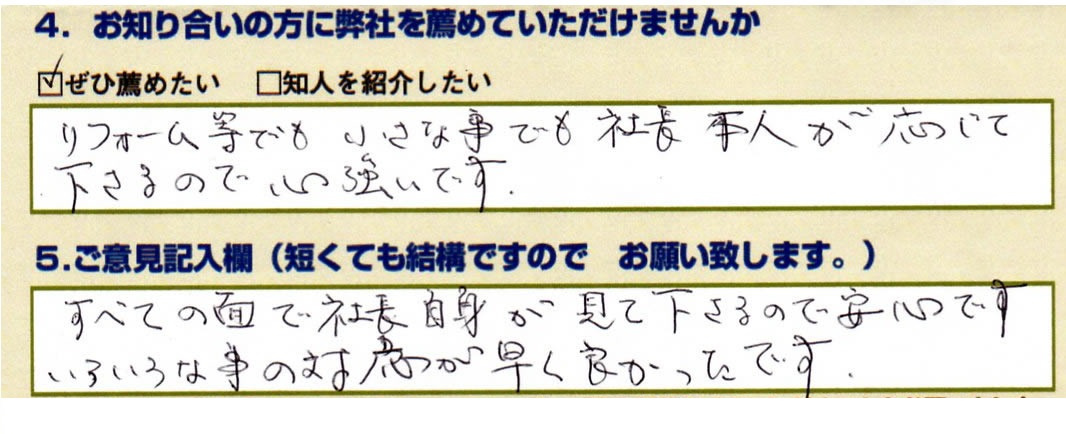 4. お知り合いの方に弊社を薦めていただけませんか
☑ぜひ薦めたい □知人を紹介したい
リフォーム等でも 小さな事でも 社長 本人が 応じて
下さるので 心強いです.
5.ご意見記入欄（短くても結構ですので お願い致します。）
すべての面で社長自身が 見て下さるので安心です
いろいろな事の対応が早く良かったです.